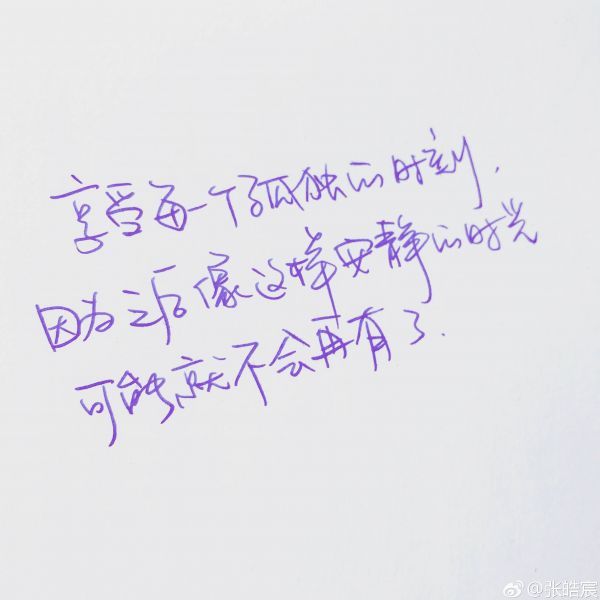 享受每一个孤独的时刻,
因为之后像这样安静的时光
可能就不会再有了.
@张皓宸